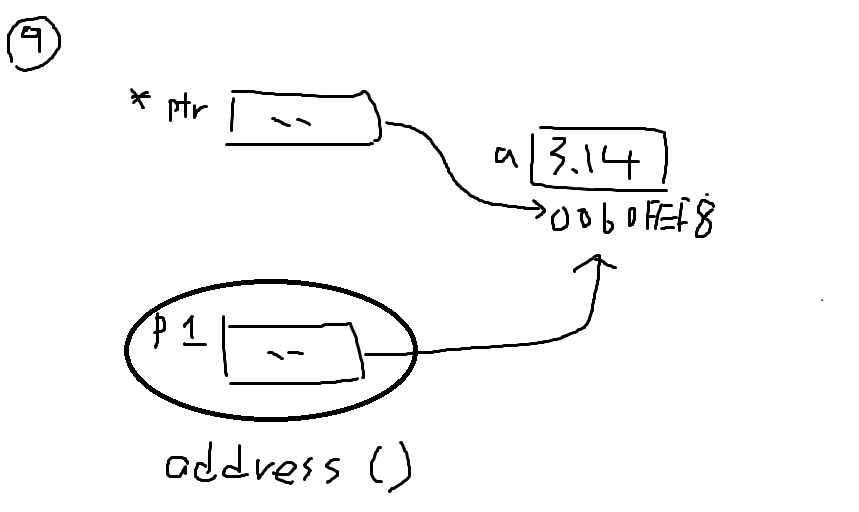 9
* ptr
a 3.14
00b0FEF8
p 1
address ()